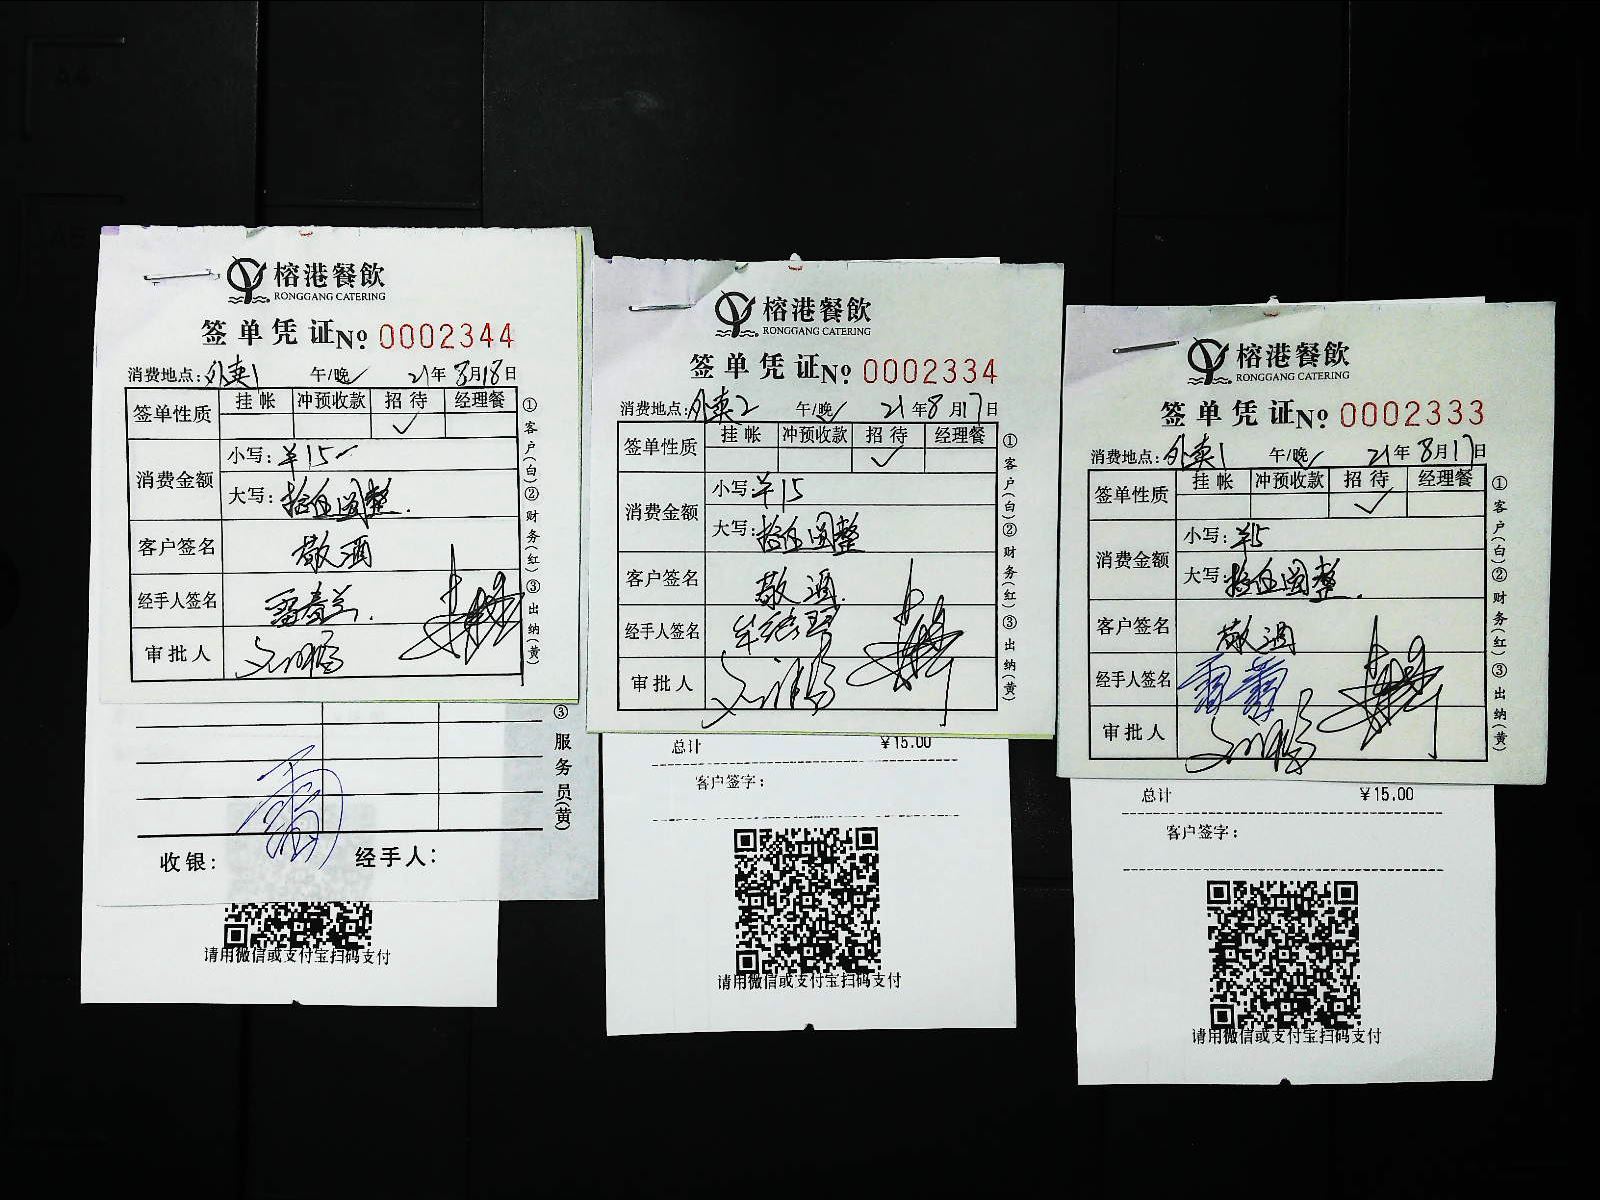 榕港餐飲
RONGGANG CATERING
签单凭证№ 0002344
消费地点：外卖1 午/晚✓ 21年8月18日
签单性质 挂帐 冲预收款 招待 经理餐
✓
消费金额 小写：¥15
大写：拾伍圆整.
客户签名 敬酒
经手人签名 雷春兰.
审批人
①客户(白)②财务(红)③出纳(黄)
③服务员(黄)
收银： 经手人：
请用微信或支付宝扫码支付
榕港餐飲
RONGGANG CATERING
签单凭证№ 0002334
消费地点：外卖2 午/晚✓ 21年8月17日
签单性质 挂帐 冲预收款 招待 经理餐
✓
消费金额 小写：¥15
大写：拾伍圆整
客户签名 敬酒.
经手人签名
审批人
①客户(白)②财务(红)③出纳(黄)
总计 ¥15.00
客户签字：
请用微信或支付宝扫码支付
榕港餐飲
RONGGANG CATERING
签单凭证№ 0002333
消费地点：外卖1 午/晚✓ 21年8月17日
签单性质 挂帐 冲预收款 招待 经理餐
✓
消费金额 小写：¥15
大写：拾伍圆整.
客户签名 敬酒
经手人签名
审批人
①客户(白)②财务(红)③出纳(黄)
总计 ¥15.00
客户签字：
请用微信或支付宝扫码支付